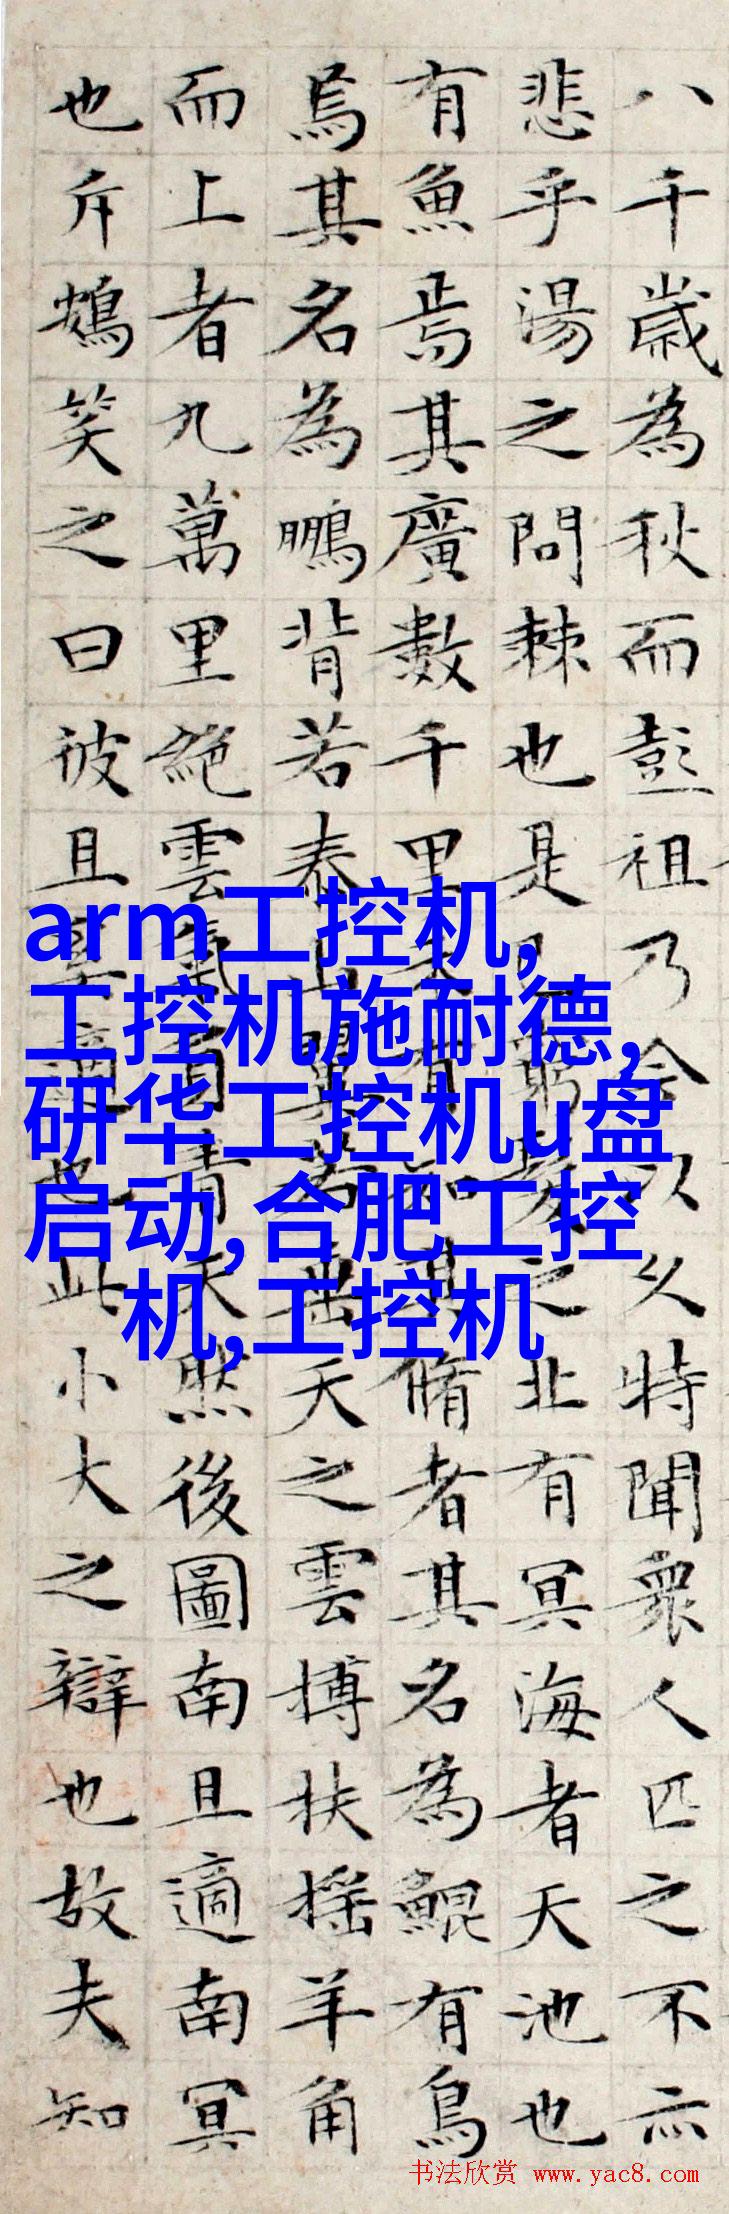 八千歲為秋而彭祖乃今以久特聞衆人匹之不亦
悲乎湯之問棘也是窮髮之北有冥海者天池也
有魚焉其廣數千里未有知其脩者其名為鯤有鳥
焉其名為鵬背若泰山翼若垂天之雲搏扶搖羊角
而上者九萬里絕雲氣負青天然後圖南且適南冥
也斥鴳笑之曰彼且適也此小大之辯也故夫知
arm工控机,
工控机施耐德,
研华工控机u盘
启动,合肥工控
机,工控机
书法欣赏 www.yac8.com